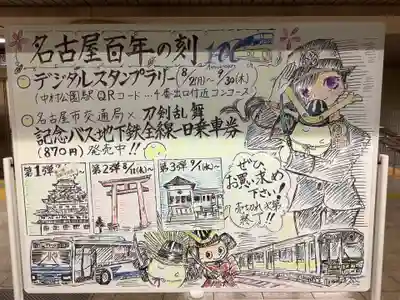 名古屋百年の刻
○デジタルスタンプラリー(8/2(月)〜9/30(木))
(中村公園駅QRコード…4番出口付近コンコース)
○名古屋市交通局×刀剣乱舞
記念バス地下鉄全線一日乗車券
(870円)発売中!!
第1弾 〜
第2弾8/11(水)〜
第3弾9/1(水)〜
ぜひ
お買い求め
下さい!
売り切れ次第
終了!!